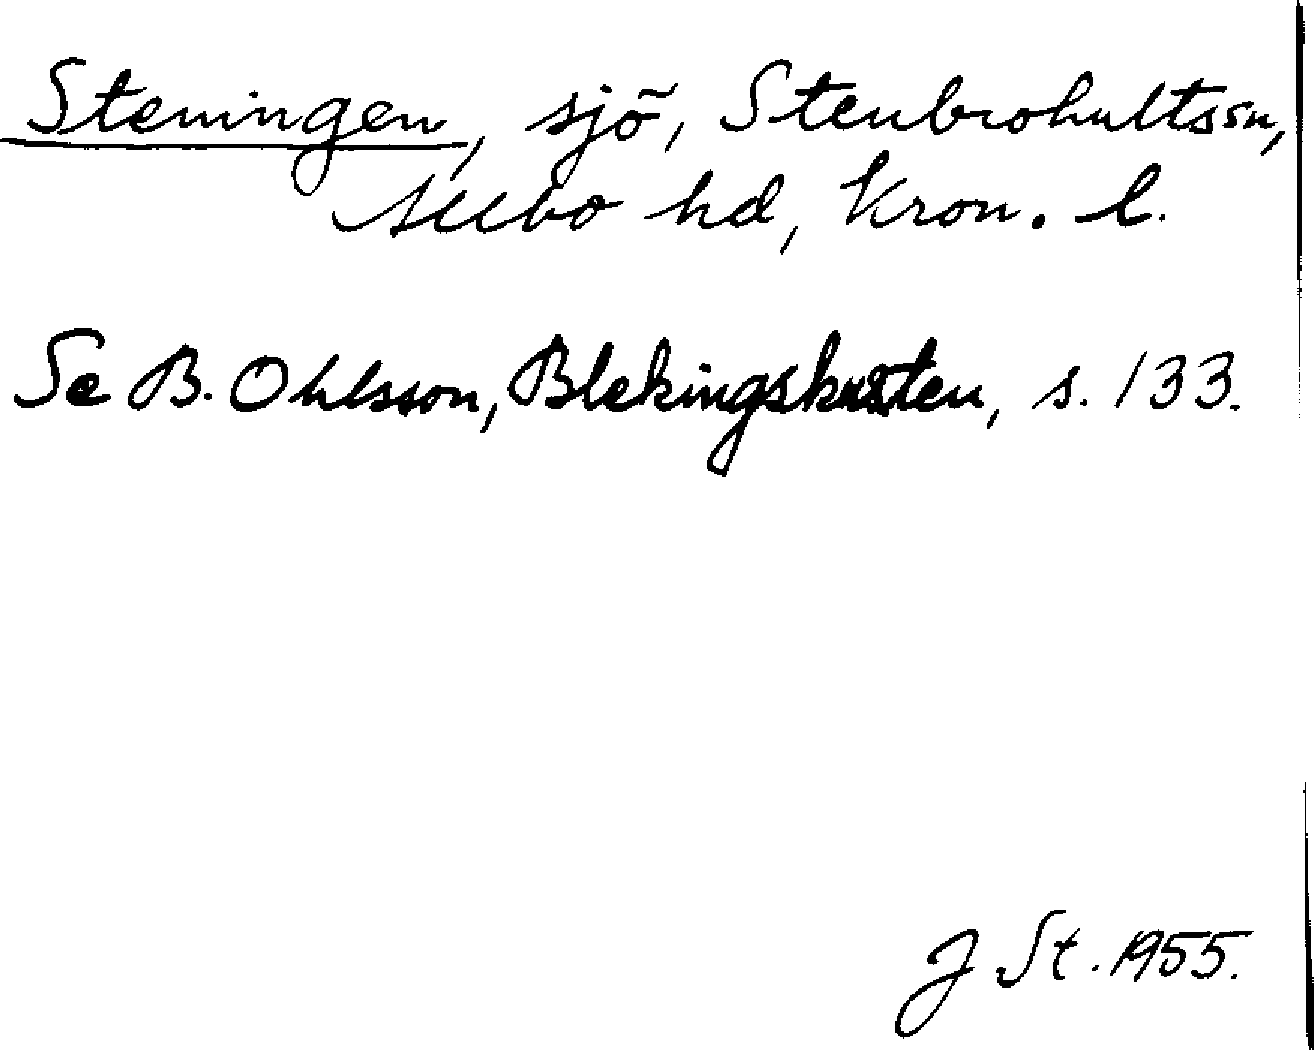 Steningen, sjö, Stenbrohultssn,
Allbo hd, Kron. l.
Se B. Ohlsson, Blekingskusten, s. 133.
J St. 1955.